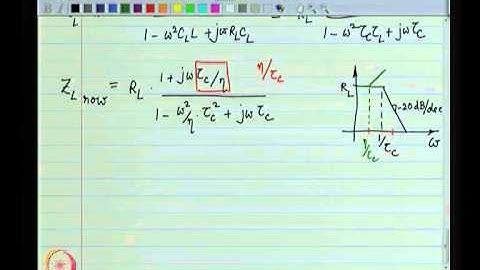 L
1 - ω²C_L L + jωR_L C_L
1 - ω²τ_Cτ_L + jωτ_C
Z_L now = R_L · (1 + jω τ_C/η) / (1 - ω²/η · τ_C² + jωτ_C)
η/τ_C
R_L
-20dB/dec
η/τ_C
1/τ_C
ω